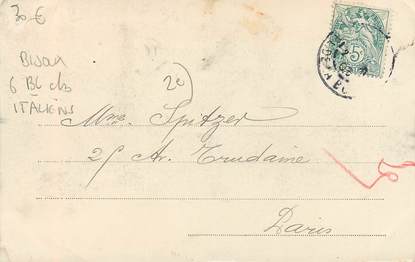 30 €
BIJOU
6 Bd des
ITALIENS
20
Mme. Spitzer
25 Av. Trudaine
Paris
5